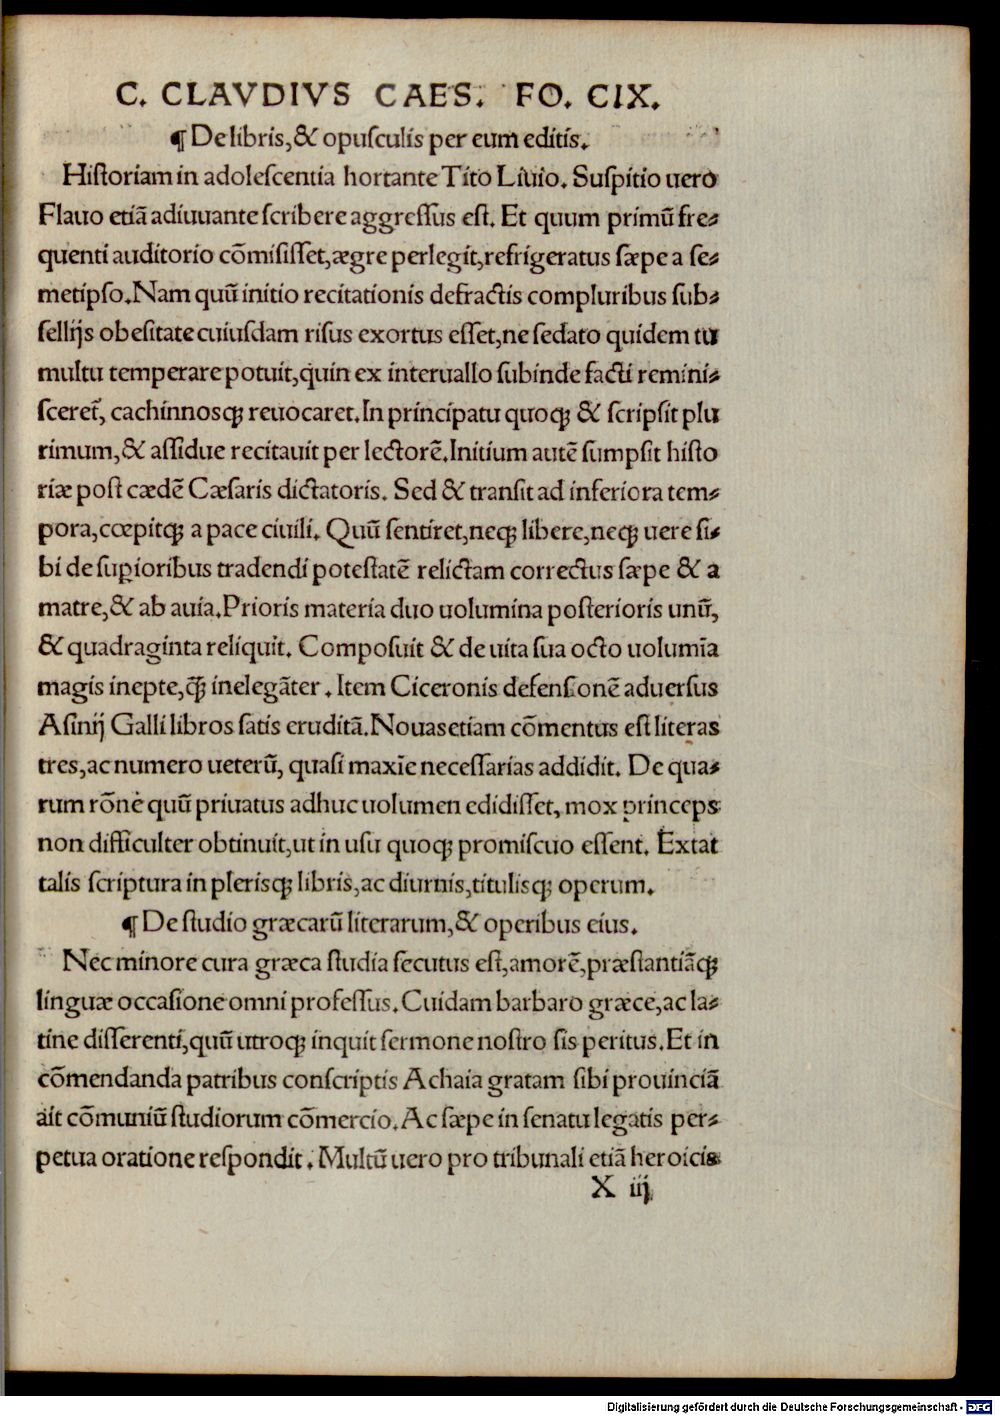 C. CLAVDIVS CAES. FO. CIX.
¶ De libris, & opusculis per eum editis.
Historiam in adolescentia hortante Tito Liuio. Suspitio uero
Flauo etiā adiuuante scribere aggressus est. Et quum primū fre-
quenti auditorio cōmisisset, ægre perlegit, refrigeratus sæpe a se-
metipso. Nam quū initio recitationis defractis compluribus sub-
sellijs obesitate cuiusdam risus exortus esset, ne sedato quidem tu
multu temperare potuit, quin ex interuallo subinde facti remini-
sceret᷑, cachinnosqꝫ reuocaret. In principatu quoqꝫ & scripsit plu
rimum, & assidue recitauit per lectorē. Initium autē sumpsit histo
riæ post cædē Cæsaris dictatoris. Sed & transit ad inferiora tem-
pora, cœpitqꝫ a pace ciuili. Quū sentiret, neqꝫ libere, neqꝫ uere si-
bi de suꝑioribus tradendi potestatē relictam correctus sæpe & a
matre, & ab auia. Prioris materia duo uolumina posterioris unū,
& quadraginta reliquit. Composuit & de uita sua octo uolumīa
magis inepte, q̄ꝫ inelegāter. Item Ciceronis defensionē aduersus
Asinij Galli libros satis eruditā. Nouas etiam cōmentus est literas
tres, ac numero ueterū, quasi maxīe necessarias addidit. De qua-
rum rōne quū priuatus adhuc uolumen edidisset, mox princeps
non difficulter obtinuit, ut in usu quoqꝫ promiscuo essent. Extat
talis scriptura in plerisqꝫ libris, ac diurnis, titulisqꝫ operum.
¶ De studio græcarū literarum, & operibus eius.
Nec minore cura græca studia secutus est, amorē, præstantiāqꝫ
linguæ occasione omni professus. Cuidam barbaro græce, ac la-
tine differenti, quū utroqꝫ inquit sermone nostro sis peritus. Et in
cōmendanda patribus conscriptis Achaia gratam sibi prouinciā
ait cōmuniū studiorum cōmercio. Ac sæpe in senatu legatis per-
petua oratione respondit. Multū uero pro tribunali etiā heroicis
X iij
Digitalisierung gefördert durch die Deutsche Forschungsgemeinschaft - DFG